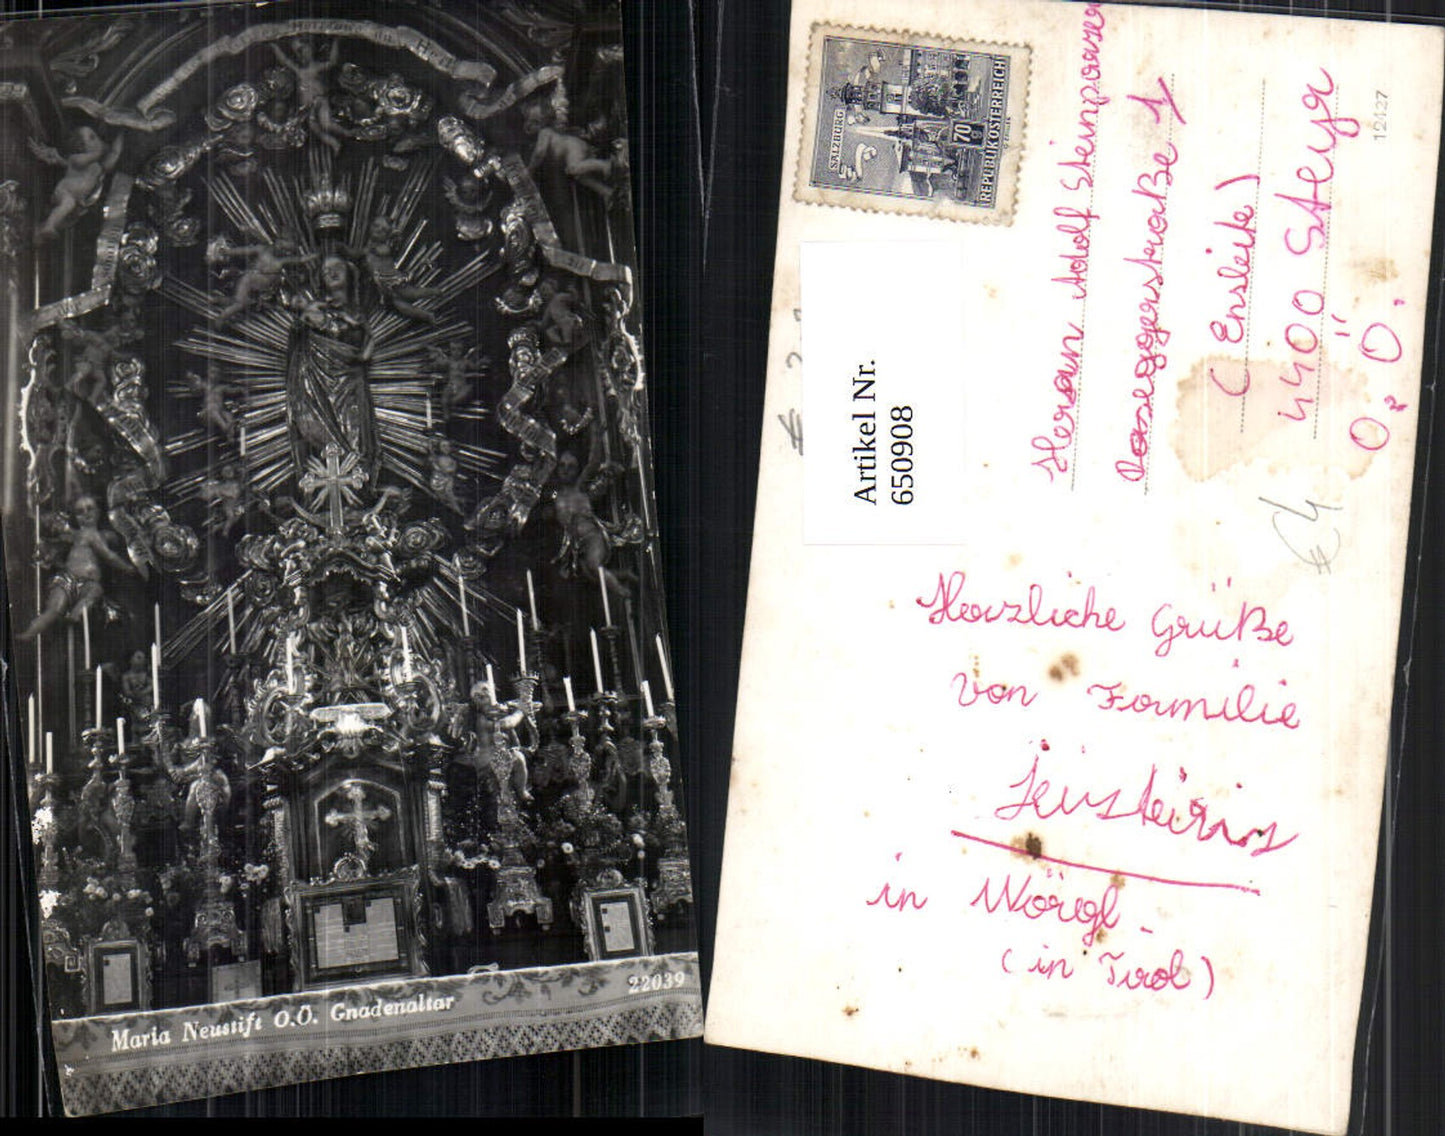 Maria Neustift O.Ö. Gnadenaltar
22039
SALZBURG
70
REPUBLIK ÖSTERREICH
Artikel Nr.
650908
Adolf Steinparzer
1
(Ensleite)
4400 Steyr
O.Ö.
12427
€4
Herzliche Grüße
von Familie
in Wörgl
(in Tirol)